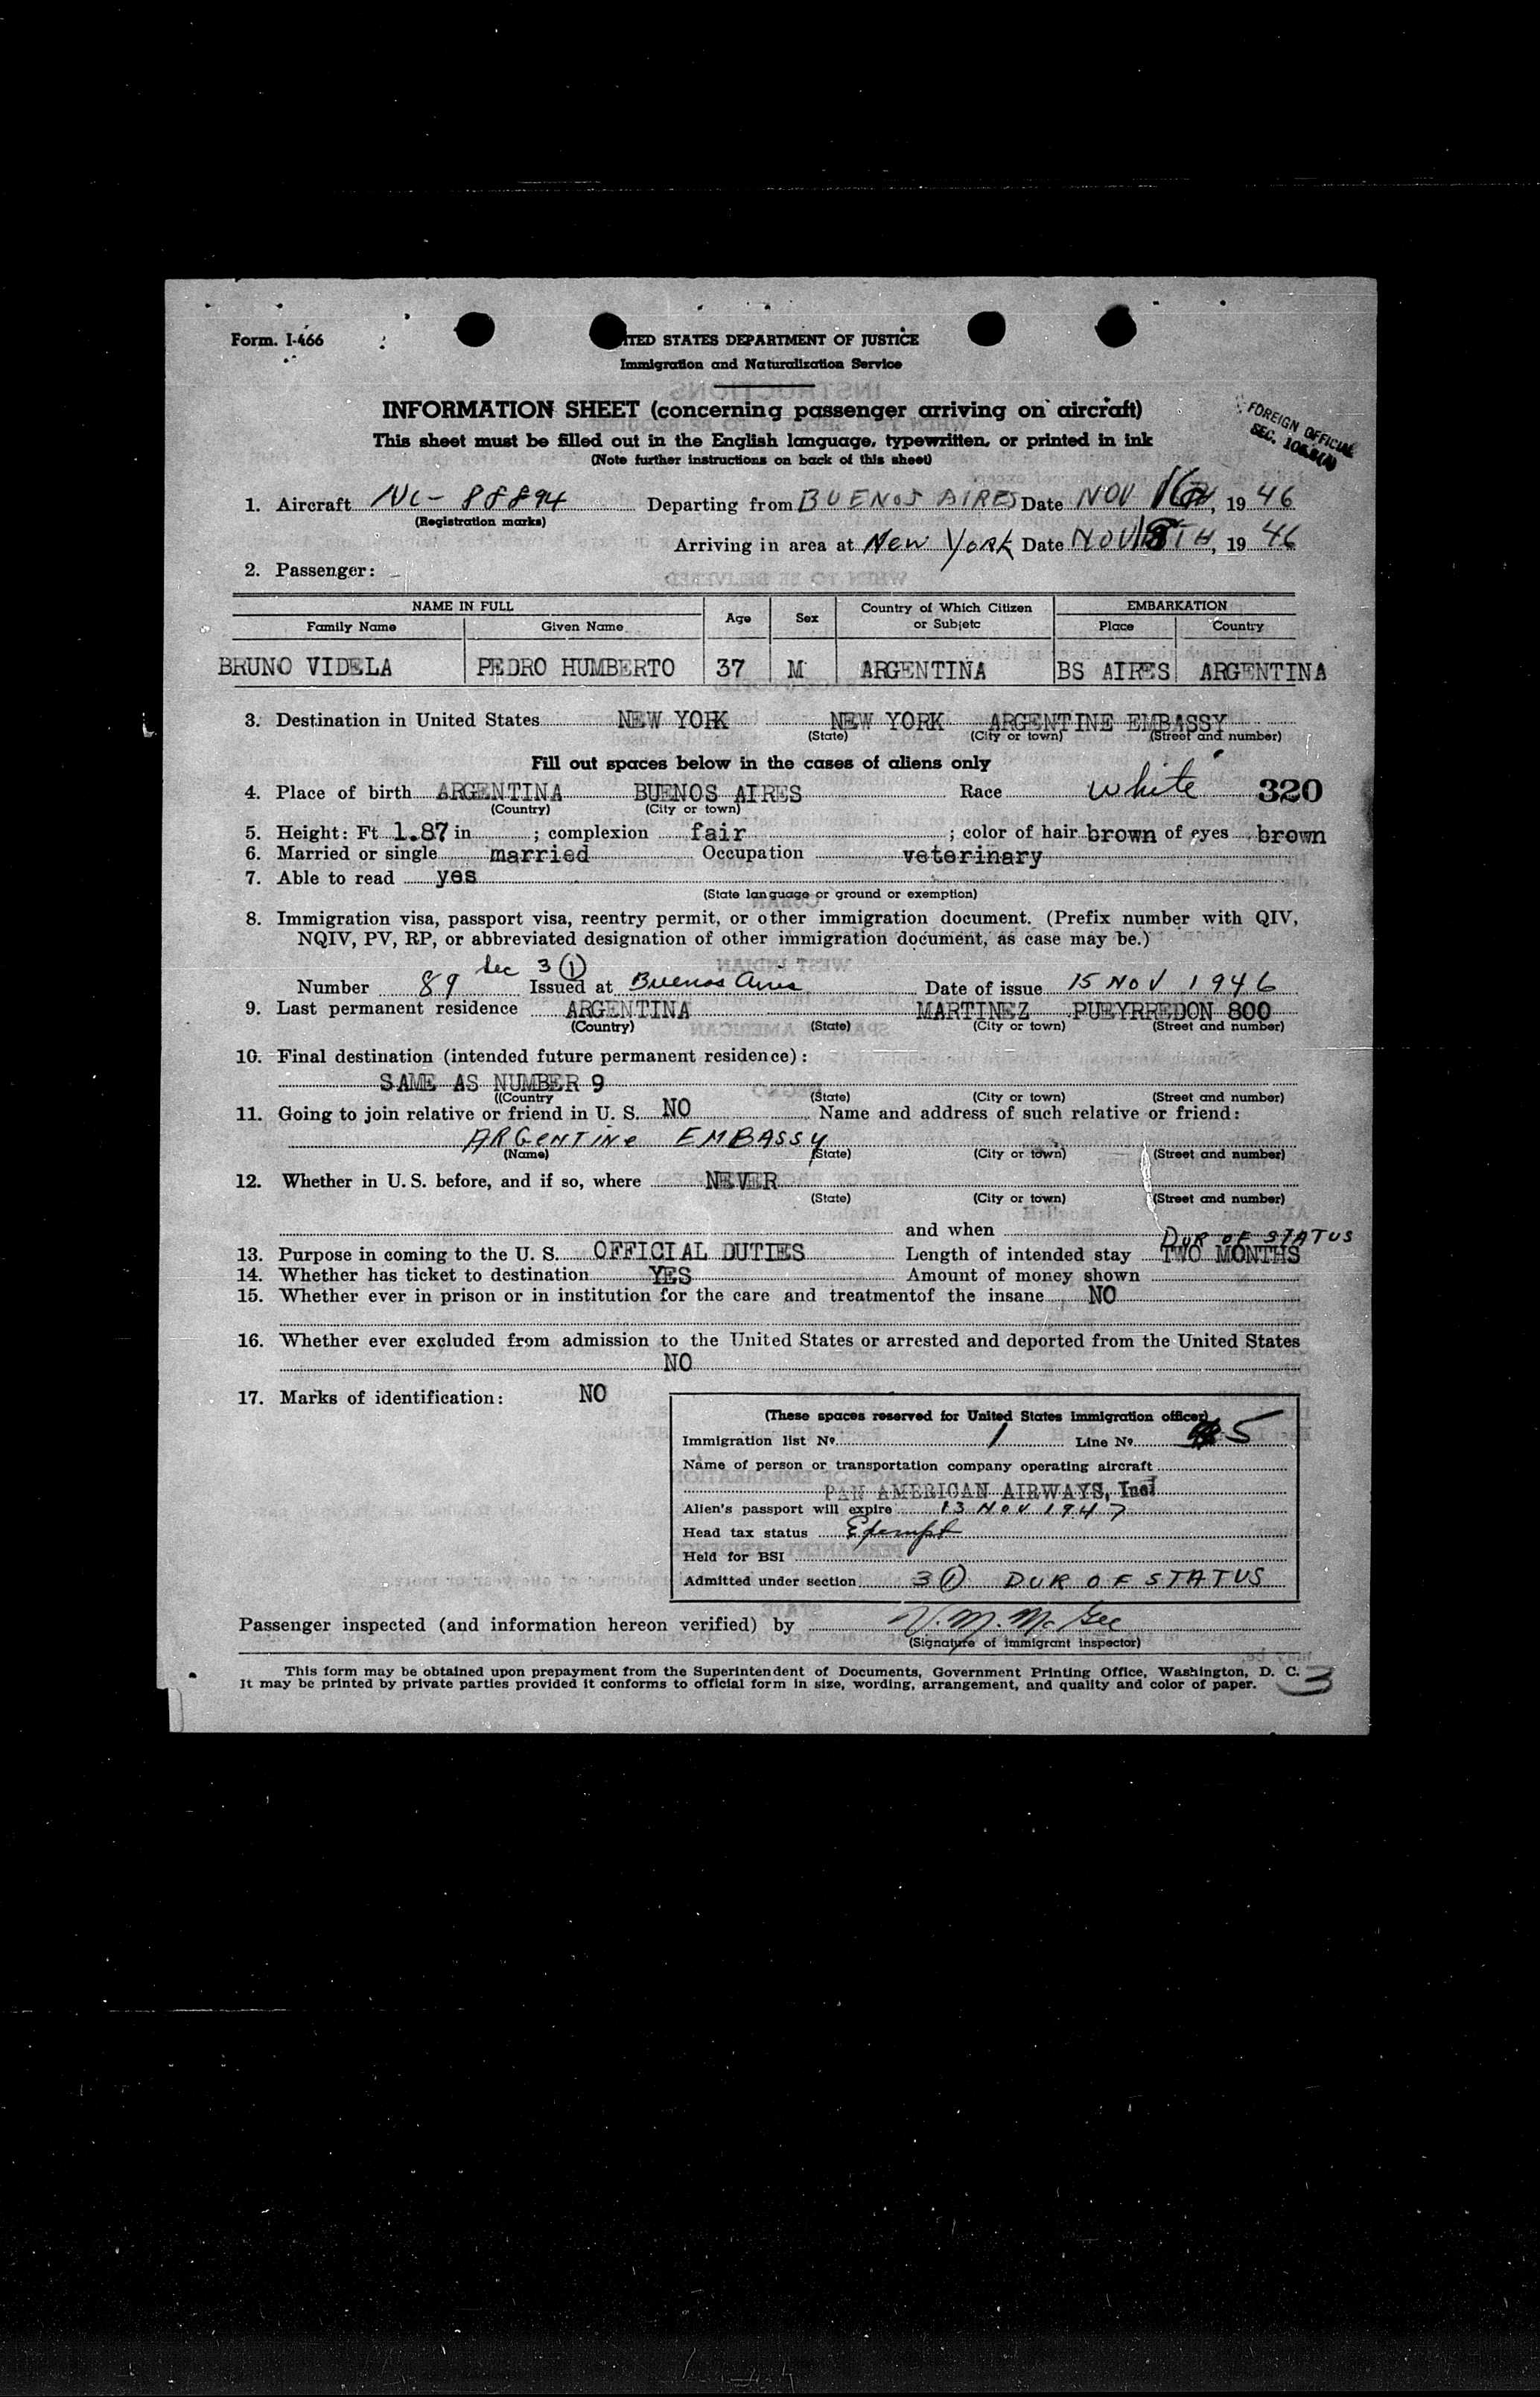 Form. I-466
ITED STATES DEPARTMENT OF JUSTICE
Immigration and Naturalization Service
INFORMATION SHEET (concerning passenger arriving on aircraft)
This sheet must be filled out in the English language, typewritten, or printed in ink
(Note further instructions on back of this sheet)
FOREIGN OFFICIAL
1. Aircraft NC-88894 Departing from BUENOS AIRES Date NOV 16TH, 19 46
(Registration marks)
Arriving in area at New York Date NOV 18TH, 19 46
2. Passenger:
NAME IN FULL Age Sex Country of Which Citizen or Subjetc EMBARKATION
Family Name Given Name Place Country
BRUNO VIDELA PEDRO HUMBERTO 37 M ARGENTINA BS AIRES ARGENTINA
3. Destination in United States NEW YORK NEW YORK ARGENTINE EMBASSY
(State) (City or town) (Street and number)
Fill out spaces below in the cases of aliens only
4. Place of birth ARGENTINA BUENOS AIRES Race white 320
(Country) (City or town)
5. Height: Ft 1.87 in ; complexion fair ; color of hair brown of eyes brown
6. Married or single married Occupation veterinary
7. Able to read yes
(State language or ground or exemption)
8. Immigration visa, passport visa, reentry permit, or other immigration document. (Prefix number with QIV,
NQIV, PV, RP, or abbreviated designation of other immigration document, as case may be.)
Sec 3 (1)
Number 89 Issued at Buenos Aires Date of issue 15 NOV 1946
9. Last permanent residence ARGENTINA MARTINEZ PUEYRREDON 800
(Country) (State) (City or town) (Street and number)
10. Final destination (intended future permanent residence):
SAME AS NUMBER 9
((Country (State) (City or town) (Street and number)
11. Going to join relative or friend in U. S. NO Name and address of such relative or friend:
ARGENTINE EMBASSY
(Name) (State) (City or town) (Street and number)
12. Whether in U. S. before, and if so, where NEVER
(State) (City or town) (Street and number)
and when
DUR OF STATUS
13. Purpose in coming to the U. S. OFFICIAL DUTIES Length of intended stay TWO MONTHS
14. Whether has ticket to destination YES Amount of money shown
15. Whether ever in prison or in institution for the care and treatmentof the insane NO
16. Whether ever excluded from admission to the United States or arrested and deported from the United States
NO
17. Marks of identification: NO
(These spaces reserved for United States immigration officer)
Immigration list No. 1 Line No. 5
Name of person or transportation company operating aircraft
PAN AMERICAN AIRWAYS, Inc.
Alien's passport will expire 13 NOV 1947
Head tax status Exempt
Held for BSI
Admitted under section 3 (1) DUR OF STATUS
Passenger inspected (and information hereon verified) by V. M. McGee
(Signature of immigrant inspector)
This form may be obtained upon prepayment from the Superintendent of Documents, Government Printing Office, Washington, D. C.
It may be printed by private parties provided it conforms to official form in size, wording, arrangement, and quality and color of paper.
3